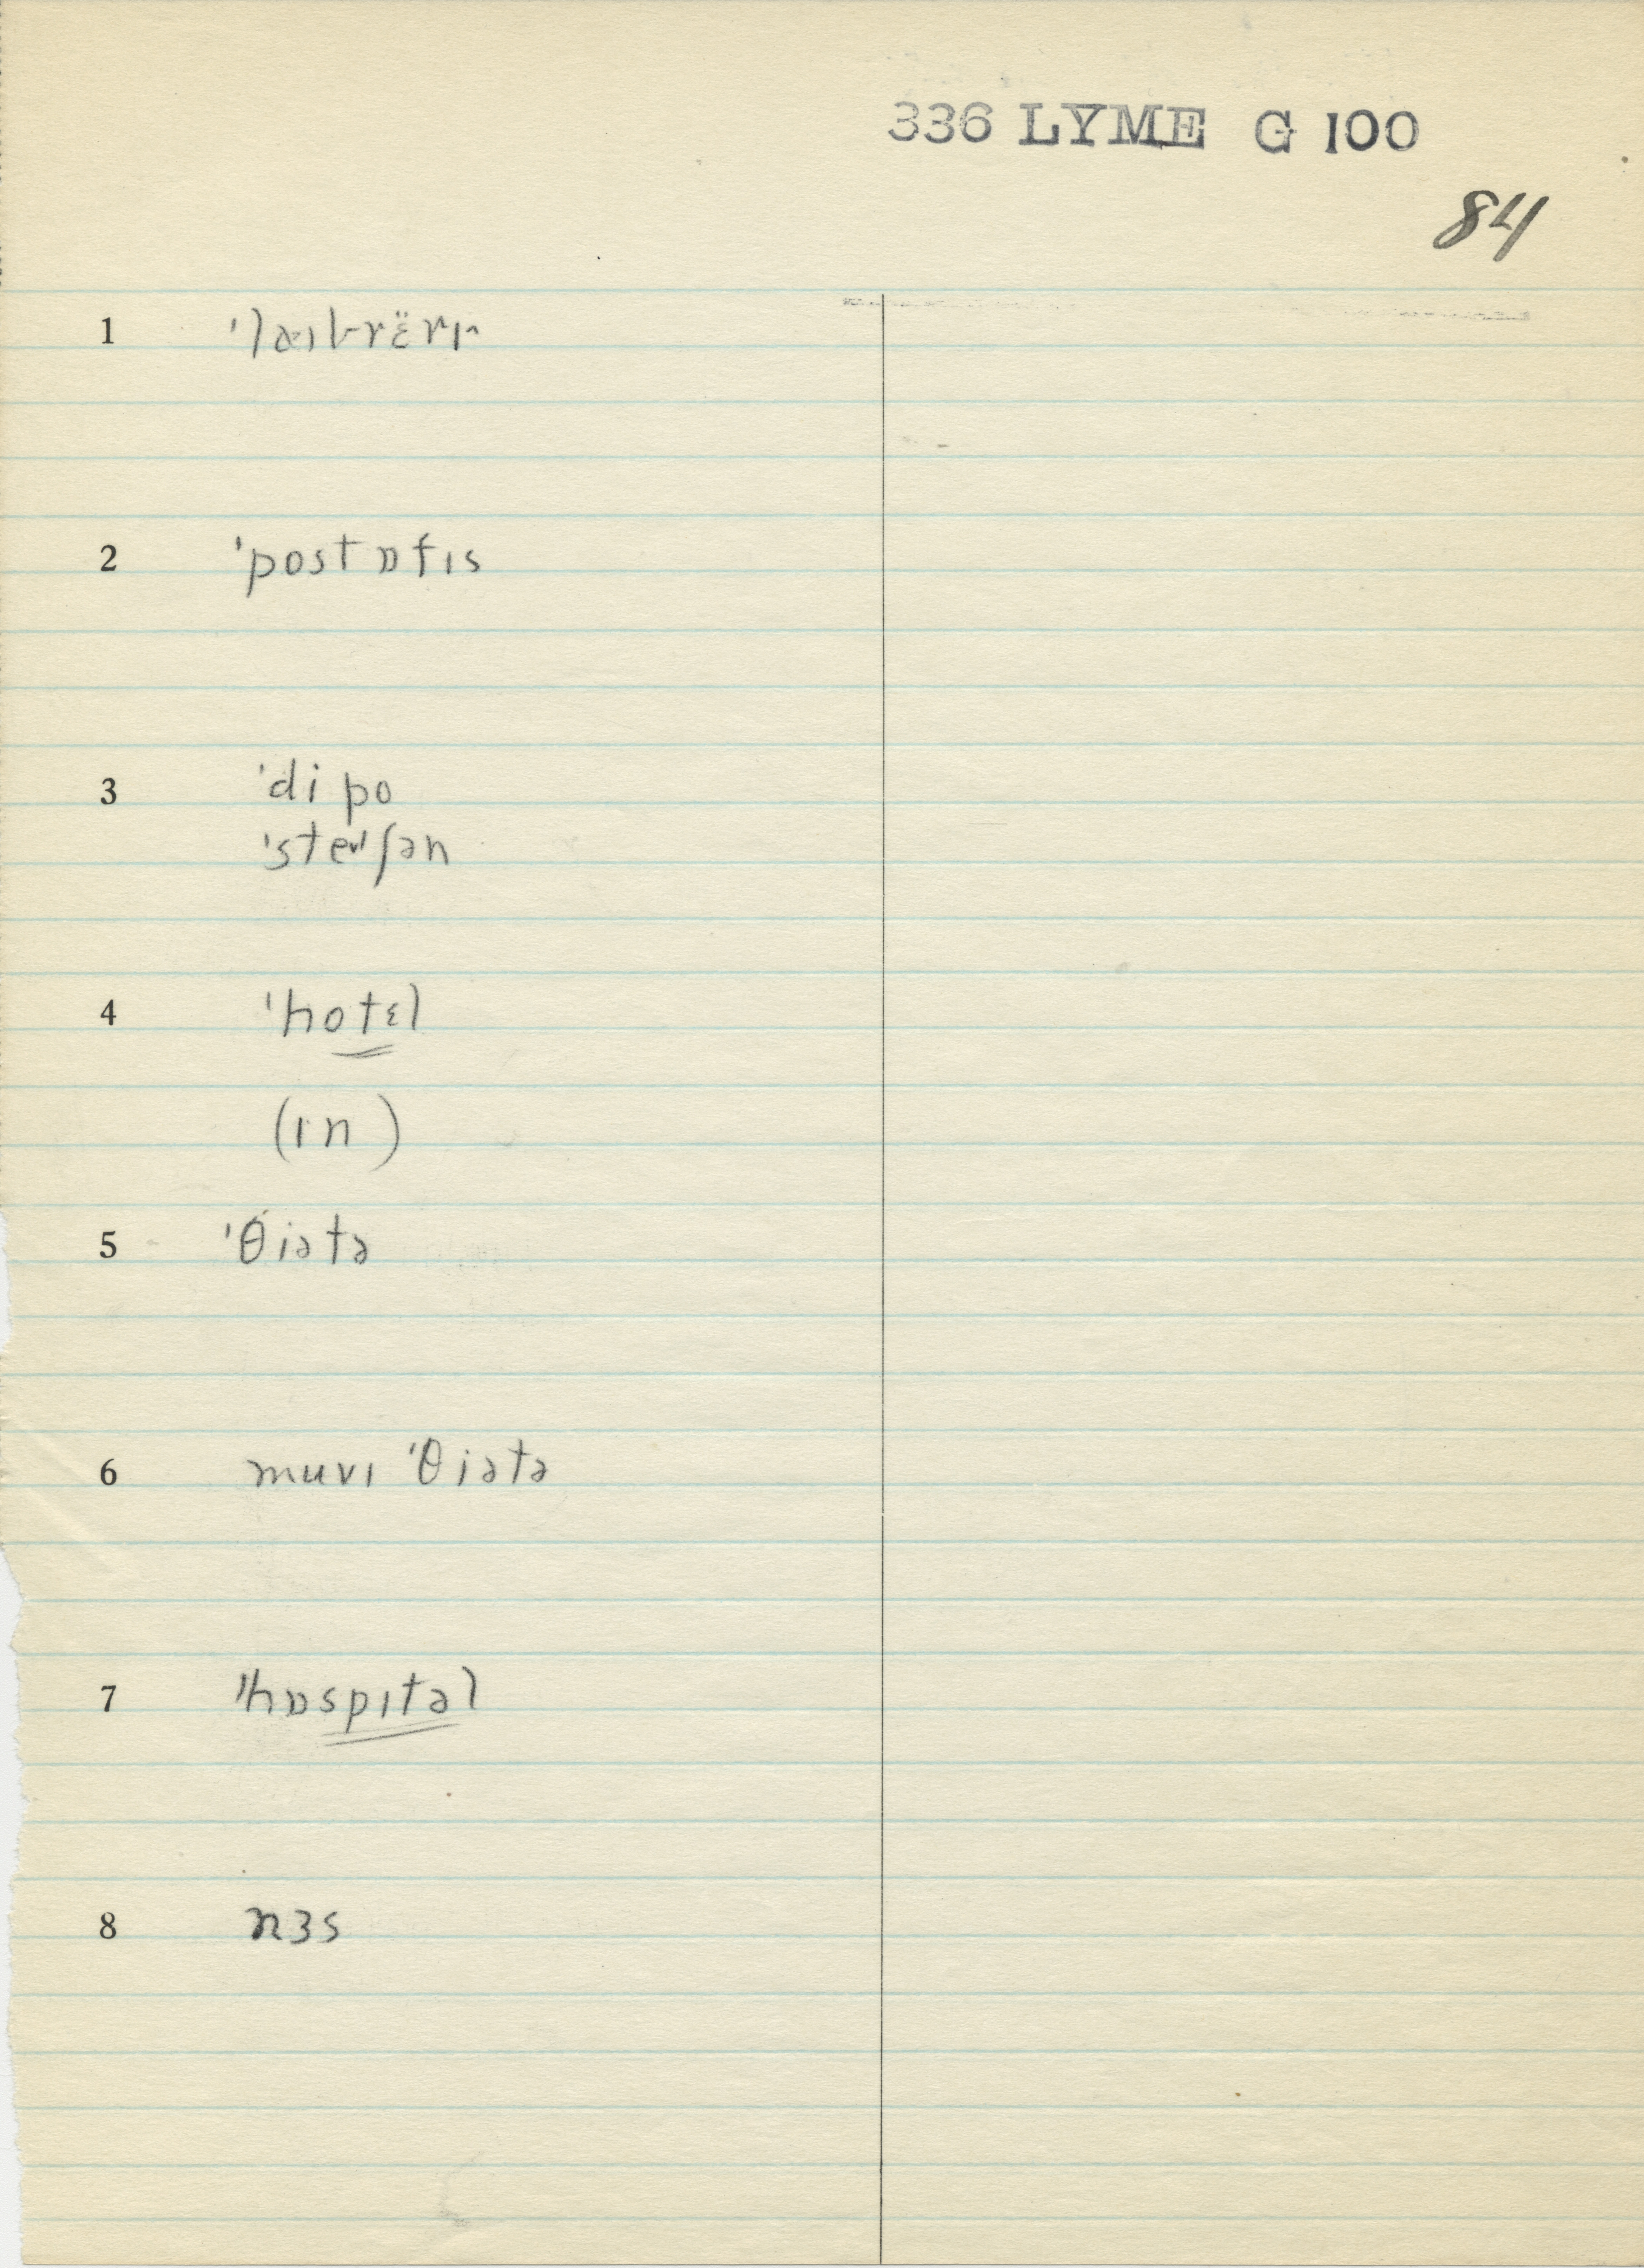 336 LYME G 100
84
1 ˈlaɪbrɛ̈rɪ
2 ˈpostɒfɪs
3 ˈdipo
ˈsteɪʃən
4 ˈhotɛl
(ɪn)
5 ˈθiətə
6 muvɪ ˈθiətə
7 ˈhɒspɪtəl
8 nɜs